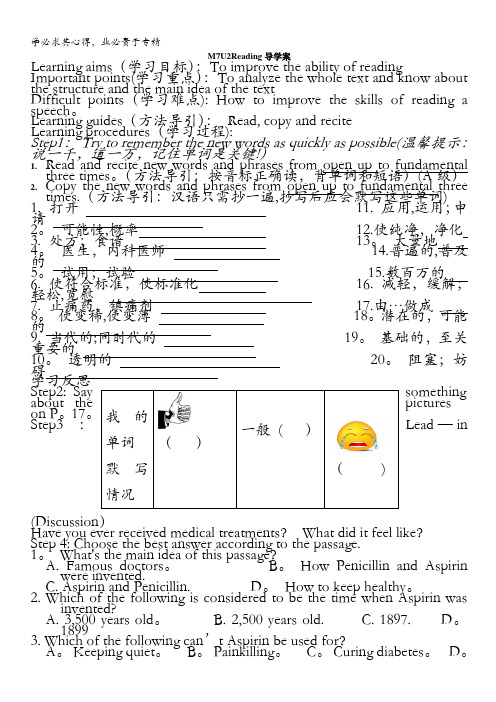 学必求其心得，业必贵于专精
M7U2Reading 导学案
Learning aims（学习目标）：To improve the ability of reading
Important points(学习重点）：To analyze the whole text and know about
the structure and the main idea of the text
Difficult points（学习难点): How to improve the skills of reading a
speech。
Learning guides（方法导引）： Read, copy and recite
Learning procedures（学习过程):
Step1： Try to remember the new words as quickly as possible(温馨提示：
说一千，道一万，记住单词是关键!)
1. Read and recite new words and phrases from open up to fundamental
three times。（方法导引；按音标正确读，背单词和短语）(A级）
2. Copy the new words and phrases from open up to fundamental three
times.（方法导引：汉语只需抄一遍,抄写后应会默写这些单词)
1。打开 11. 应用,运用；申
请
2。 可能性,概率 12.使纯净，净化
3. 处方；食谱 13。 大家地
4。 医生，内科医师 14.普遍的,普及
的
5。 试用；试验 15.数百万的
6. 使符合标准，使标准化 16. 减轻，缓解；
轻松,宽慰
7。止痛药，镇痛剂 17.由…做成
8。 使变稀,使变薄 18。潜在的，可能
的
9。当代的;同时代的 19。 基础的，至关
重要的
10。 透明的 20。 阻塞；妨
碍
学习反思
Step2: Say something
about the pictures
on P。17。
我的单词默写情况
（ ）
一般（ ）
（ ）
Step3 ： Lead — in
(Discussion）
Have you ever received medical treatments？ What did it feel like?
Step 4: Choose the best answer according to the passage.
1。 What's the main idea of this passage?
A. Famous doctors。 B。 How Penicillin and Aspirin
were invented.
C. Aspirin and Penicillin. D。 How to keep healthy。
2. Which of the following is considered to be the time when Aspirin was
invented?
A. 3,500 years old。 B. 2,500 years old. C. 1897. D。
1899
3. Which of the following can't Aspirin be used for?
A。 Keeping quiet。 B。 Painkilling。 C。 Curing diabetes。 D。